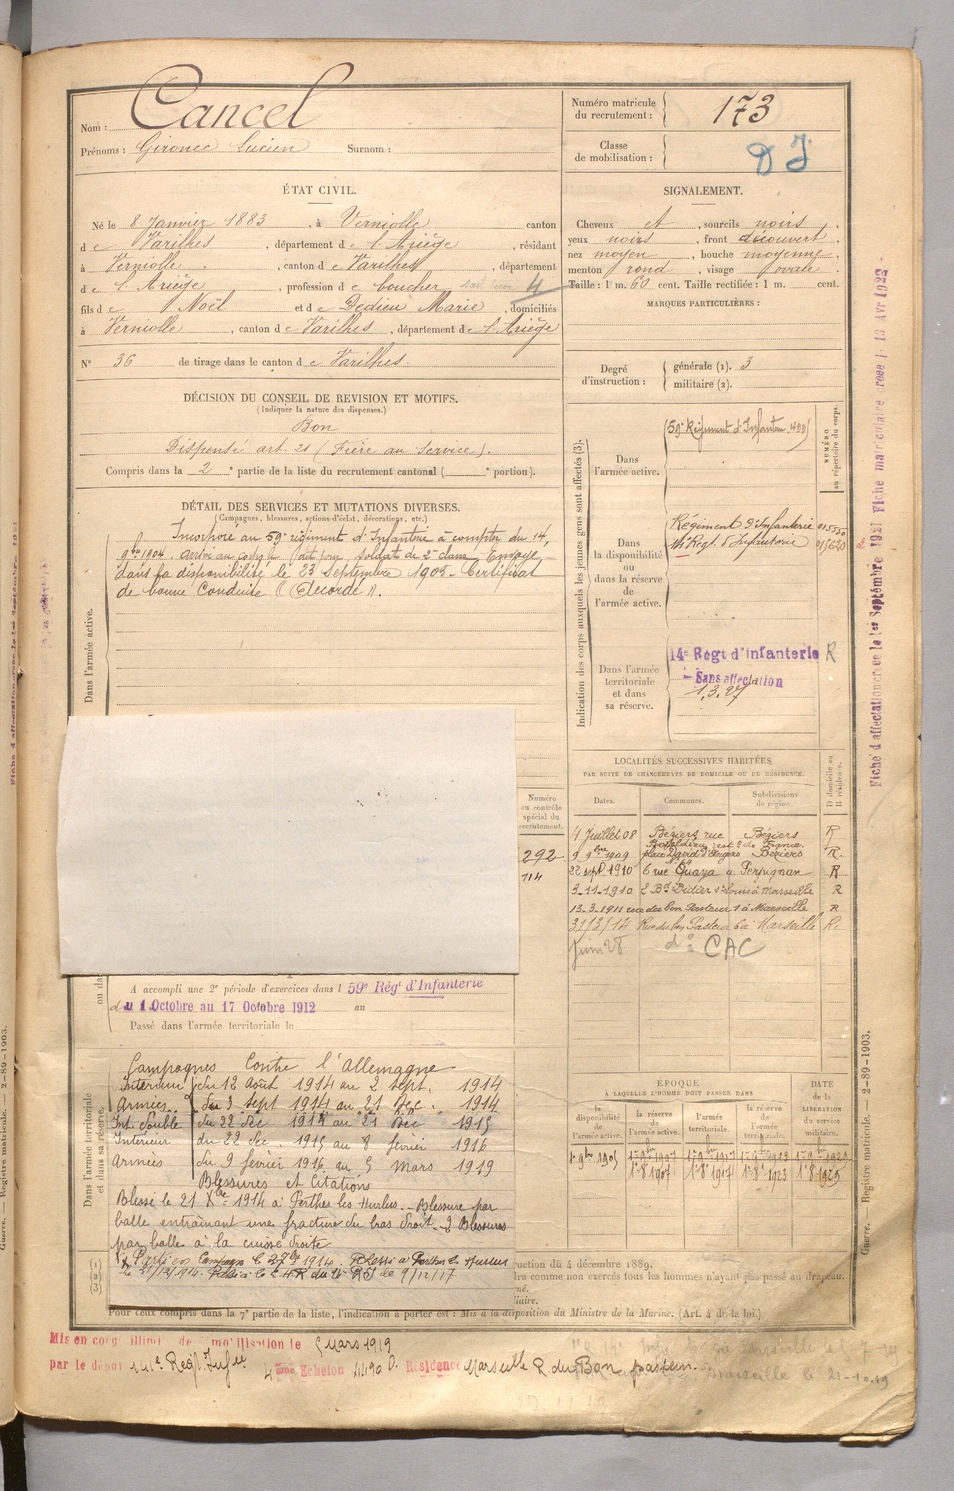 Nom : Cancel
Prénoms : Gironce Lucien Surnom :
Numéro matricule du recrutement : 173
Classe de mobilisation :
ÉTAT CIVIL.
Né le 8 Janvier 1883, à Verniolle canton
de Varilhes, département de l'Ariège, résidant
à Verniolle, canton de Varilhes, département
de l'Ariège, profession de boucher 4
fils de Noël et de Dedieu Marie, domiciliés
à Verniolle, canton de Varilhes, département de l'Ariège
N° 36 de tirage dans le canton de Varilhes.
SIGNALEMENT.
Cheveux et, sourcils noirs,
yeux noirs, front découvert,
nez moyen, bouche moyenne,
menton rond, visage ovale.
Taille : 1 m. 60 cent. Taille rectifiée : 1 m. cent.
MARQUES PARTICULIÈRES :
Degré d'instruction : générale (1). 3
militaire (2).
DÉCISION DU CONSEIL DE REVISION ET MOTIFS.
(Indiquer la nature des dispenses.)
Bon
Dispensé art. 21 (Frère au Service).
Compris dans la 2e partie de la liste du recrutement cantonal ( e portion).
DÉTAIL DES SERVICES ET MUTATIONS DIVERSES.
(Campagnes, blessures, actions d'éclat, décorations, etc.)
Dans l'armée active.
Incorporé au 59e régiment d'Infanterie à compter du 14
9bre 1904. arrivé au corps le dit jour soldat de 2e classe Envoyé
dans la disponibilité le 23 Septembre 1905. Certificat
de bonne Conduite "Accordé".
Indication des corps auxquels les jeunes gens sont affectés (3).
NUMÉRO au répertoire du corps.
Dans l'armée active.
59e Régiment d'Infanterie
Dans la disponibilité ou dans la réserve de l'armée active.
Régiment d'Infanterie
Regt d'Infanterie
Dans l'armée territoriale et dans sa réserve.
14e Régt d'Infanterie R
Sans affectation
1.3.27
Fiche d'affectation créée le 1er Septembre 1921 Fiche matriculaire créée le 13 Avr 1922
LOCALITÉS SUCCESSIVES HABITÉES
PAR SUITE DE CHANGEMENTS DE DOMICILE OU DE RÉSIDENCE.
Dates. Communes. Subdivisions de région. D domicile ou R résidence.
4 Juillet 08 Béziers rue Béziers R
9 9bre 1909 place David d'Angers Béziers R.
22 sept 1910 6 rue Quaya à Perpignan R
3-11-1910 Bd à Marseille R
13-3-1911 rue du bon Pasteur 1 à Marseille R
31/3/14 Rue du bon Pasteur 6 à Marseille R.
Juin 28 do CAC
Numéro au contrôle spécial du recrutement.
292
714
A accompli une 2e période d'exercices dans l 59e Régt d'Infanterie
du 1 Octobre au 17 Octobre 1912 au
Passé dans l'armée territoriale le
Dans l'armée territoriale et dans sa réserve.
Campagnes Contre l'Allemagne
Intérieur du 12 Août 1914 au 2 sept. 1914
Armées du 3 sept 1914 au 21 Dec. 1914
Int. double du 22 dec 1914 au 21 Dec 1915
Intérieur du 22 Dec. 1915 au 8 février 1916
Armées du 9 février 1916 au 5 Mars 1919
Blessures et Citations
Blessé le 21 Xbre 1914 à Perthes les Hurlus. Blessure par
balle entraînant une fracture du bras droit. 2 Blessures
par balle à la cuisse droite
ÉPOQUE
À LAQUELLE L'HOMME DOIT PASSER DANS
la disponibilité de l'armée active. la réserve de l'armée active. l'armée territoriale. la réserve de l'armée territoriale.
DATE de la LIBÉRATION du service militaire.
1er 9bre 1905
(1)
(2)
(3)
uction du 4 décembre 1889.
dra comme non exercés tous les hommes n'ayant pas passé au drapeau.
Pour ceux compris dans la 7e partie de la liste, l'indication à porter est : Mis à la disposition du Ministre de la Marine. (Art. 4 de la loi.)
Guerre. — Registre matricule. — 2-89-1903.
Mis en congé illimité de démobilisation le 5 Mars 1919
par le dépôt 141e Regt Infie 4ème Echelon 4490 D. Résidence Marseille R. du Bon pasteur.